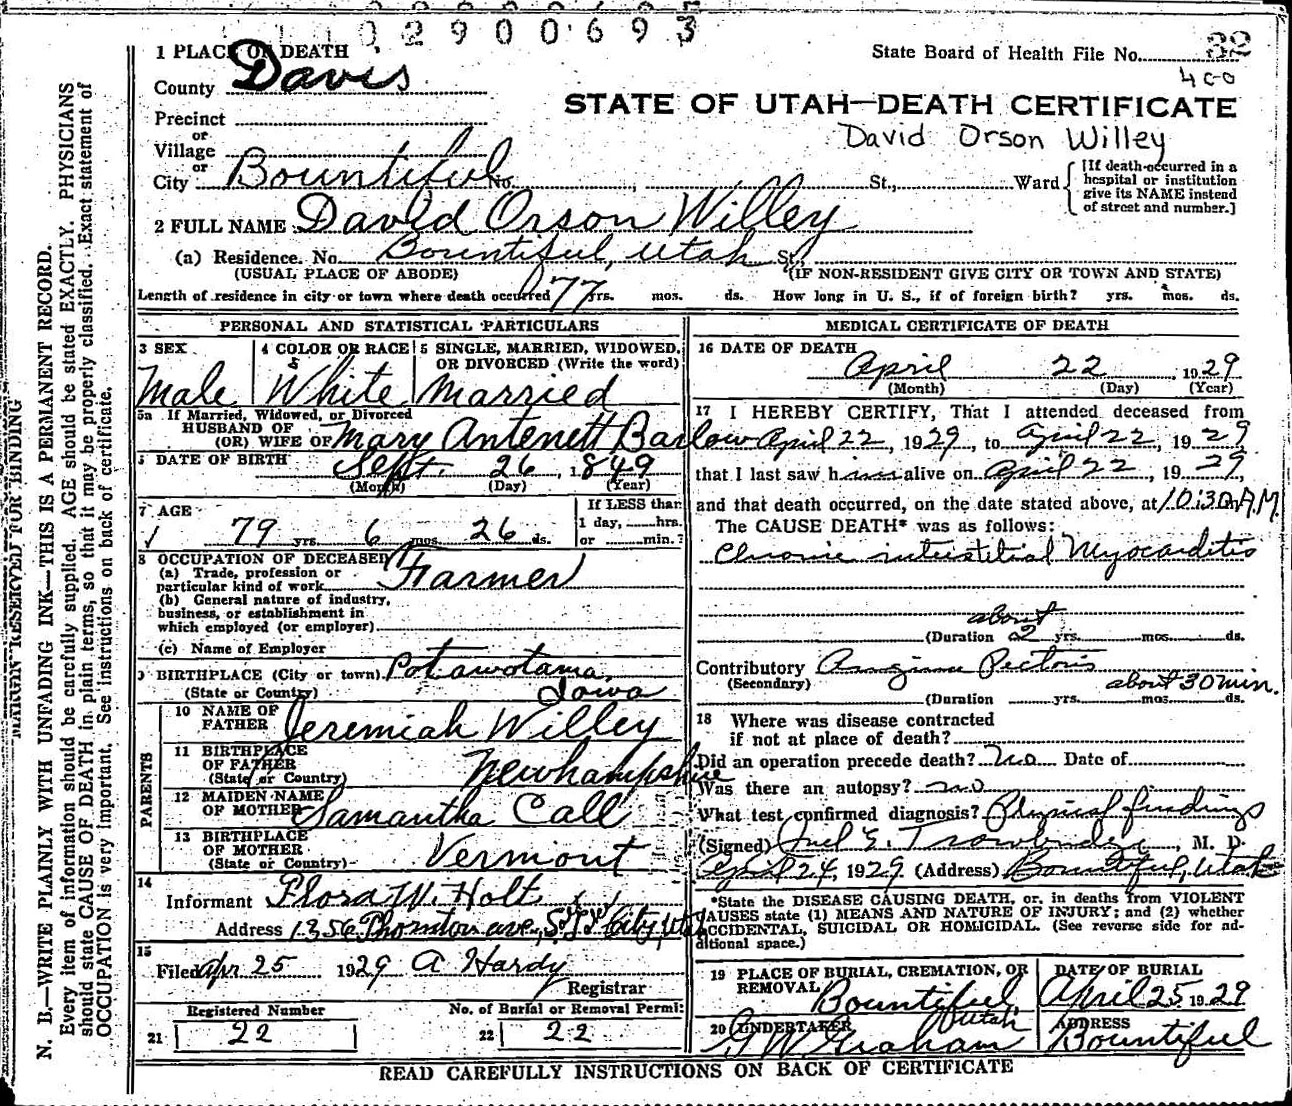 02900693
1 PLACE OF DEATH
State Board of Health File No. 32
County Davis
400
STATE OF UTAH—DEATH CERTIFICATE
Precinct
David Orson Willey
or
Village
or
City Bountiful No. , St., Ward
[If death occurred in a
hospital or institution
give its NAME instead
of street and number.]
2 FULL NAME David Orson Willey
(a) Residence. No. Bountiful, Utah St.,
(USUAL PLACE OF ABODE) (IF NON-RESIDENT GIVE CITY OR TOWN AND STATE)
Length of residence in city or town where death occurred 77 yrs. mos. ds. How long in U. S., if of foreign birth? yrs. mos. ds.
PERSONAL AND STATISTICAL PARTICULARS
3 SEX
Male
4 COLOR OR RACE
White
5 SINGLE, MARRIED, WIDOWED,
OR DIVORCED (Write the word)
Married
5a If Married, Widowed, or Divorced
HUSBAND OF
(OR) WIFE OF Mary Antenett Barlow
DATE OF BIRTH Sept. 26, 1849
(Month) (Day) (Year)
7 AGE
79 yrs. 6 mos. 26 ds.
If LESS than
1 day, hrs.
or min.?
8 OCCUPATION OF DECEASED
(a) Trade, profession or
particular kind of work Farmer
(b) General nature of industry,
business, or establishment in
which employed (or employer)
(c) Name of Employer
9 BIRTHPLACE (City or town) Potawotama,
(State or Country) Iowa
PARENTS
10 NAME OF
FATHER Jeremiah Willey
11 BIRTHPLACE
OF FATHER
(State or Country) Newhampshire
12 MAIDEN NAME
OF MOTHER Samantha Call
13 BIRTHPLACE
OF MOTHER
(State or Country) Vermont
14
Informant Flora W. Holt
Address 1356 Thornton ave, S. L. City, Utah
15
Filed Apr 25 1929 A Hardy
Registrar
Registered Number
21 22
No. of Burial or Removal Permit
22 22
MEDICAL CERTIFICATE OF DEATH
16 DATE OF DEATH
April 22, 1929
(Month) (Day) (Year)
17 I HEREBY CERTIFY, That I attended deceased from
April 22, 1929, to April 22, 1929
that I last saw him alive on April 22, 1929,
and that death occurred, on the date stated above, at 10:30 A.M.
The CAUSE DEATH* was as follows:
Chronic interstitial Myocarditis
about
(Duration 2 yrs. mos. ds.
Contributory Angina Pectoris
(Secondary) about 30 min.
(Duration yrs. mos. ds.
18 Where was disease contracted
if not at place of death?
Did an operation precede death? No Date of
Was there an autopsy? no
What test confirmed diagnosis? Physical findings
(Signed) E. Trowbridge, M. D.
April 24, 1929 (Address) Bountiful, Utah
*State the DISEASE CAUSING DEATH, or, in deaths from VIOLENT
CAUSES state (1) MEANS AND NATURE OF INJURY; and (2) whether
ACCIDENTAL, SUICIDAL OR HOMICIDAL. (See reverse side for ad-
ditional space.)
19 PLACE OF BURIAL, CREMATION, OR
REMOVAL Bountiful
Utah
DATE OF BURIAL
April 25 1929
20 UNDERTAKER
G W Graham
ADDRESS
Bountiful
READ CAREFULLY INSTRUCTIONS ON BACK OF CERTIFICATE
MARGIN RESERVED FOR BINDING
N. B.—WRITE PLAINLY WITH UNFADING INK—THIS IS A PERMANENT RECORD.
Every item of information should be carefully supplied. AGE should be stated EXACTLY. PHYSICIANS
should state CAUSE OF DEATH in plain terms, so that it may be properly classified. Exact statement of
OCCUPATION is very important. See instructions on back of certificate.